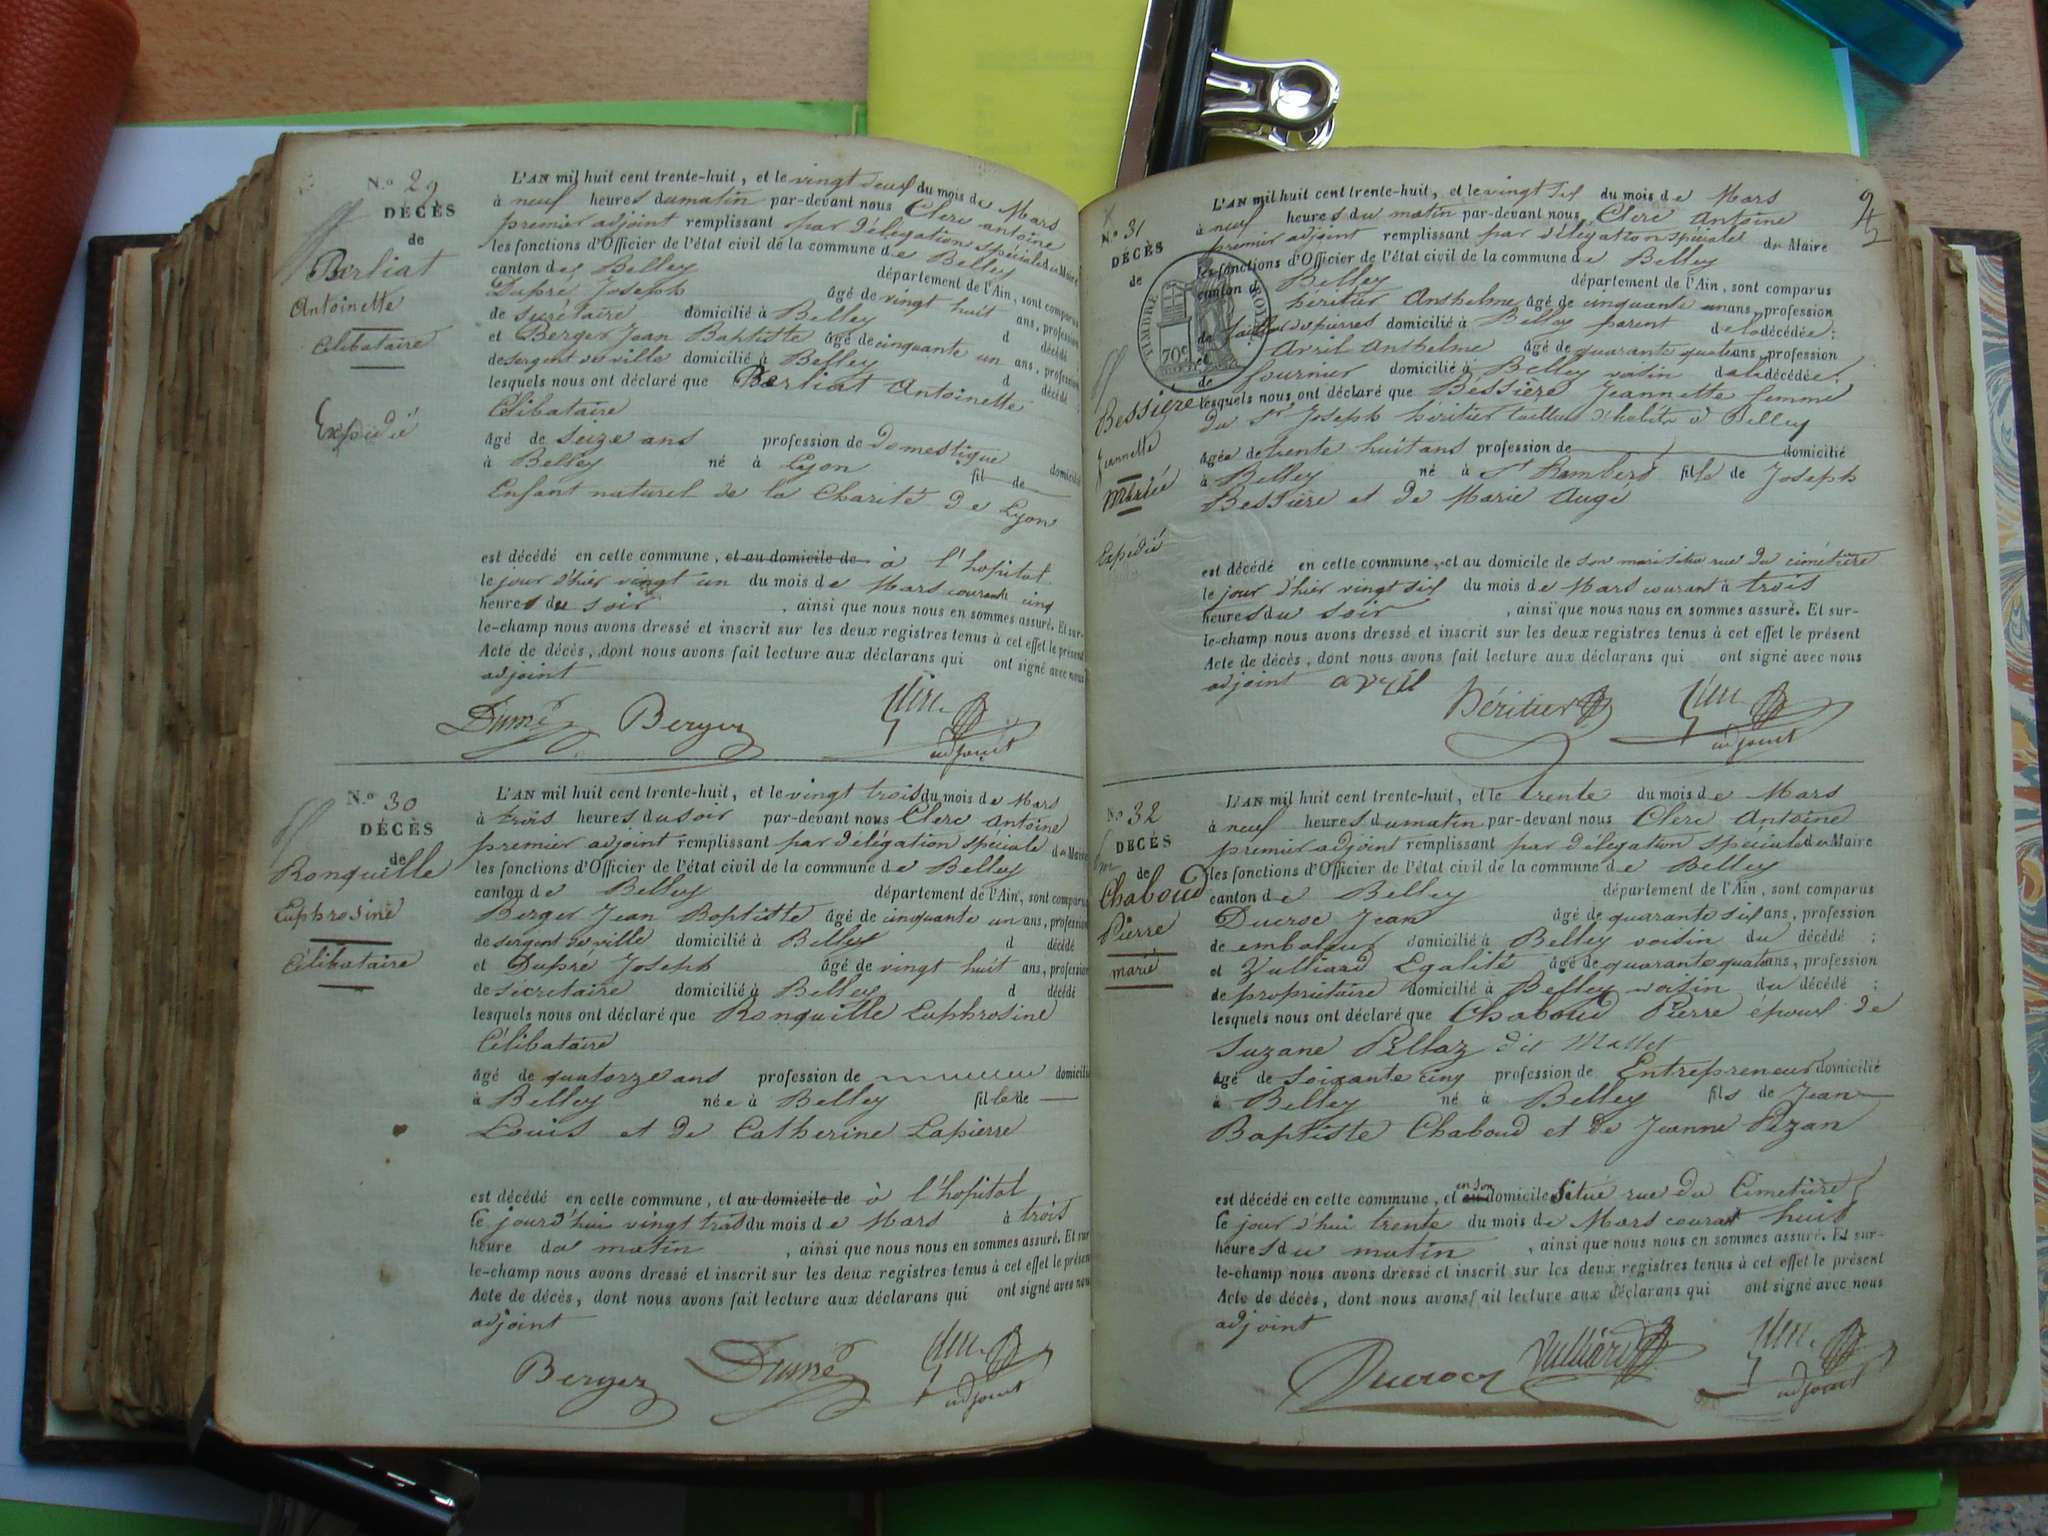 N.o 29
DÉCÈS
de
Berliat
Antoinette
Célibataire
Expédié
L'AN mil huit cent trente-huit, et le vingt deux du mois de Mars
à neuf heures du matin par-devant nous Clerc antoine
premier adjoint remplissant par délégation spéciale de Maire
les fonctions d'Officier de l'état civil de la commune de Belley
canton de Belley département de l'Ain, sont comparus
Dupré Joseph âgé de vingt huit ans, profession
de secrétaire domicilié à Belley d décédé
et Berger Jean Baptiste âgé de cinquante un ans, profession
de sergent de ville domicilié à Belley d décédé
lesquels nous ont déclaré que Berliat Antoinette
Célibataire
âgé de seize ans profession de domestique domicilié
à Belley né à Lyon fil de
Enfant naturel de la Charité de Lyon
est décédé en cette commune, et au domicile de à l'hopital
le jour d'hier vingt un du mois de Mars courant cinq
heures du soir , ainsi que nous nous en sommes assuré. Et sur-
le-champ nous avons dressé et inscrit sur les deux registres tenus à cet effet le présent
Acte de décès, dont nous avons fait lecture aux déclarans qui ont signé avec nous
adjoint
Berger
adjoint
N.o 30
DÉCÈS
de
Ronquille
Euphrosine
Célibataire
L'AN mil huit cent trente-huit, et le vingt trois du mois de Mars
à trois heures du soir par-devant nous Clerc Antoine
premier adjoint remplissant par délégation spéciale de Maire
les fonctions d'Officier de l'état civil de la commune de Belley
canton de Belley département de l'Ain, sont comparus
Berger Jean Baptiste âgé de cinquante un ans, profession
de sergent de ville domicilié à Belley d décédé
et Dupré Joseph âgé de vingt huit ans, profession
de secretaire domicilié à Belley d décédé
lesquels nous ont déclaré que Ronquille Euphrosine
Célibataire
âgé de quatorze ans profession de domicilié
à Belley née à Belley fille de
Louis et de Catherine Lapierre
est décédé en cette commune, et au domicile de à l'hopital
le jourd'hui vingt trois du mois de Mars à trois
heure du matin , ainsi que nous nous en sommes assuré. Et sur
le-champ nous avons dressé et inscrit sur les deux registres tenus à cet effet le présent
Acte de décès, dont nous avons fait lecture aux déclarans qui ont signé avec nous
adjoint
Berger
adjoint
N.o 31
DÉCÈS
de
TIMBRE ROYAL
70c
Bessière
Jeannette
Mariée
Expédié
L'AN mil huit cent trente-huit, et le vingt six du mois de Mars
à neuf heures du matin par-devant nous Clerc Antoine
premier adjoint remplissant par délégation spéciale de Maire
les fonctions d'Officier de l'état civil de la commune de Belley
canton de Belley département de l'Ain, sont comparus
héritier Anthelme âgé de cinquante un ans, profession
de tailleur de pierres domicilié à Belley parent de la décédée;
et Avril Anthelme âgé de quarante quatre ans, profession
de fournier domicilié à Belley voisin de la décédée;
lesquels nous ont déclaré que Bessière Jeannette femme
du Sr Joseph héritier tailleur d'habits à Belley
âgée de trente huit ans profession de domicilié
à Belley né à St Rambert fille de Joseph
Bessière et de Marie Augé
est décédé en cette commune, et au domicile de son mari situé rue du cimétière
le jour d'hier vingt six du mois de Mars courant à trois
heures du soir , ainsi que nous nous en sommes assuré. Et sur-
le-champ nous avons dressé et inscrit sur les deux registres tenus à cet effet le présent
Acte de décès, dont nous avons fait lecture aux déclarans qui ont signé avec nous
adjoint avril
héritier
adjoint
N.o 32
DÉCÈS
de
Chaboud
Pierre
marié
L'AN mil huit cent trente-huit, et le trente du mois de Mars
à neuf heures du matin par-devant nous Clerc Antoine
premier adjoint remplissant par délégation spéciale de Maire
les fonctions d'Officier de l'état civil de la commune de Belley
canton de Belley département de l'Ain, sont comparus
Ducroc Jean âgé de quarante six ans, profession
de embaleur domicilié à Belley voisin du décédé;
et Vulliard Egalité âgé de quarante quatre ans, profession
de propriétaire domicilié à Belley voisin du décédé;
lesquels nous ont déclaré que Chaboud Pierre époux de
Suzane Pellaz dit Mallet
âgé de soixante cinq profession de Entrepreneur domicilié
à Belley né à Belley fils de Jean
Baptiste Chaboud et de Jeanne Pezan
est décédé en cette commune, et en son au domicile situé rue du Cimetière
le jourd'hui trente du mois de Mars courant huit
heures du matin , ainsi que nous nous en sommes assuré. Et sur-
le-champ nous avons dressé et inscrit sur les deux registres tenus à cet effet le présent
Acte de décès, dont nous avons fait lecture aux déclarans qui ont signé avec nous
adjoint
Ducroc
adjoint